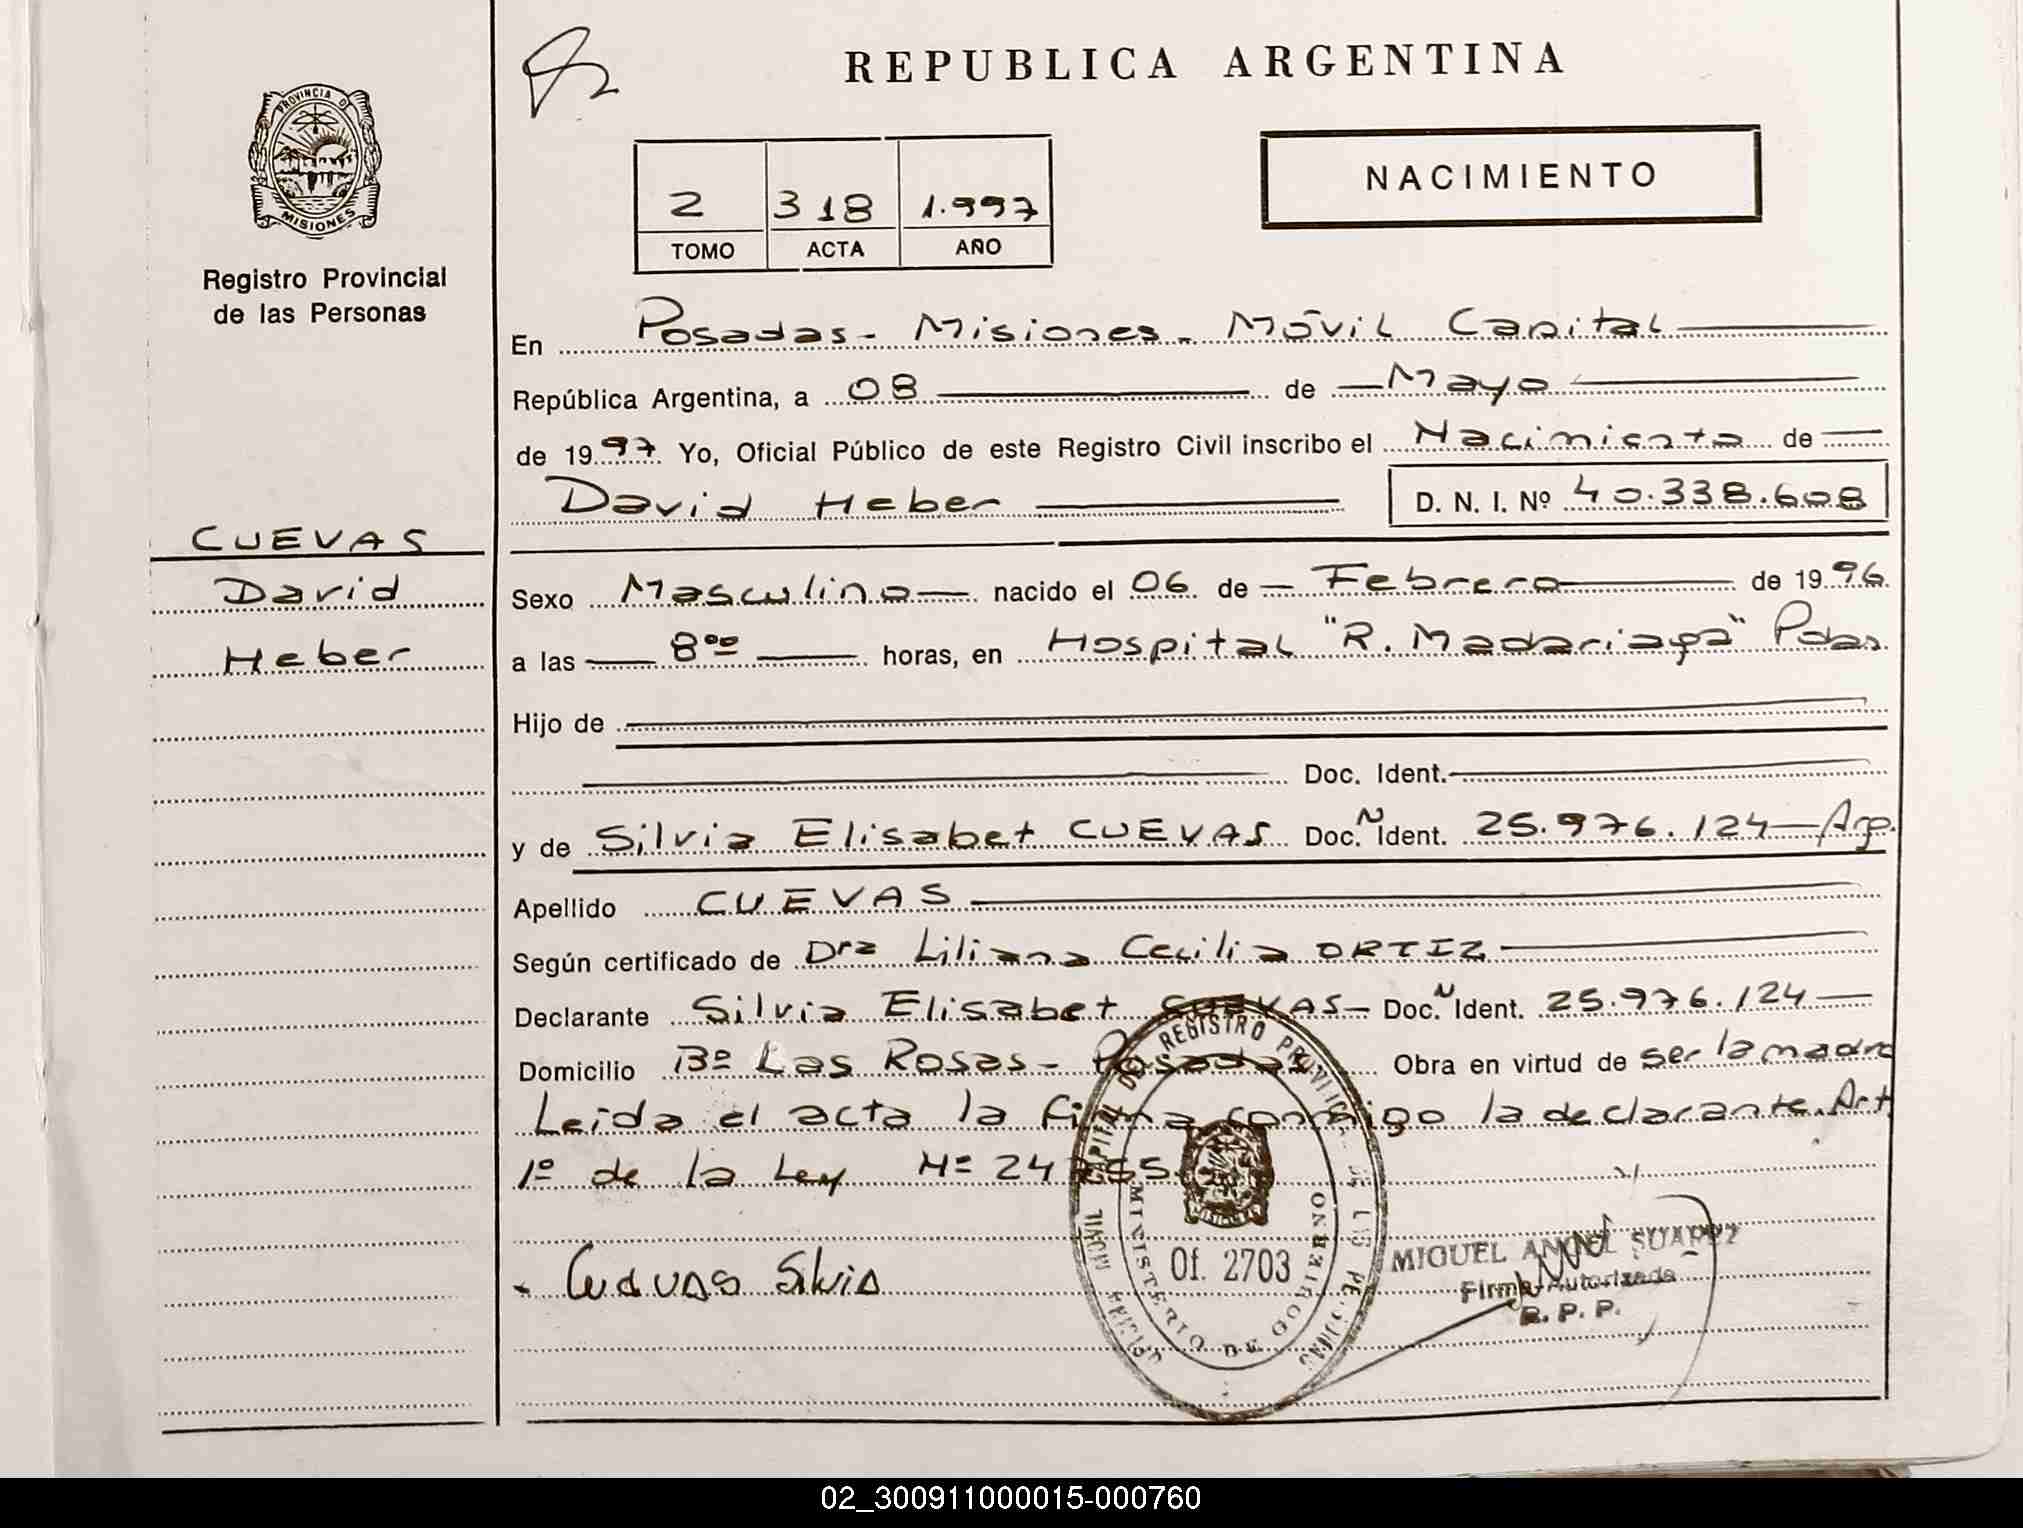 REPUBLICA ARGENTINA
PROVINCIA DE
MISIONES
Registro Provincial
de las Personas
2 318 1.997
TOMO ACTA AÑO
NACIMIENTO
CUEVAS
David
Heber
En Posadas - Misiones - Móvil Capital
República Argentina, a 08 de Mayo
de 1997 Yo, Oficial Público de este Registro Civil inscribo el Nacimiento de
David Heber D. N. I. Nº 40.338.608
Sexo Masculino nacido el 06 de Febrero de 1996
a las 8⁰⁰ horas, en Hospital "R. Madariaga" Pdas.
Hijo de
Doc. Ident.
y de Silvia Elisabet CUEVAS Doc. N Ident. 25.976.124 - Arg.
Apellido CUEVAS
Según certificado de Dra Liliana Cecilia ORTIZ
Declarante Silvia Elisabet CUEVAS - Doc. N Ident. 25.976.124
Domicilio Bº Las Rosas - Posadas Obra en virtud de ser la madre
Leida el acta la firma conmigo la declarante. Art
1º de la Ley Nº
Cuevas Silvia
CAPITAL DEL REGISTRO PROVINCIAL DE LAS PERSONAS
MINISTERIO DE GOBIERNO
MISIONES
Of. 2703
MIGUEL ANGEL SUAREZ
Firma Autorizada
R. P. P.
02_300911000015-000760